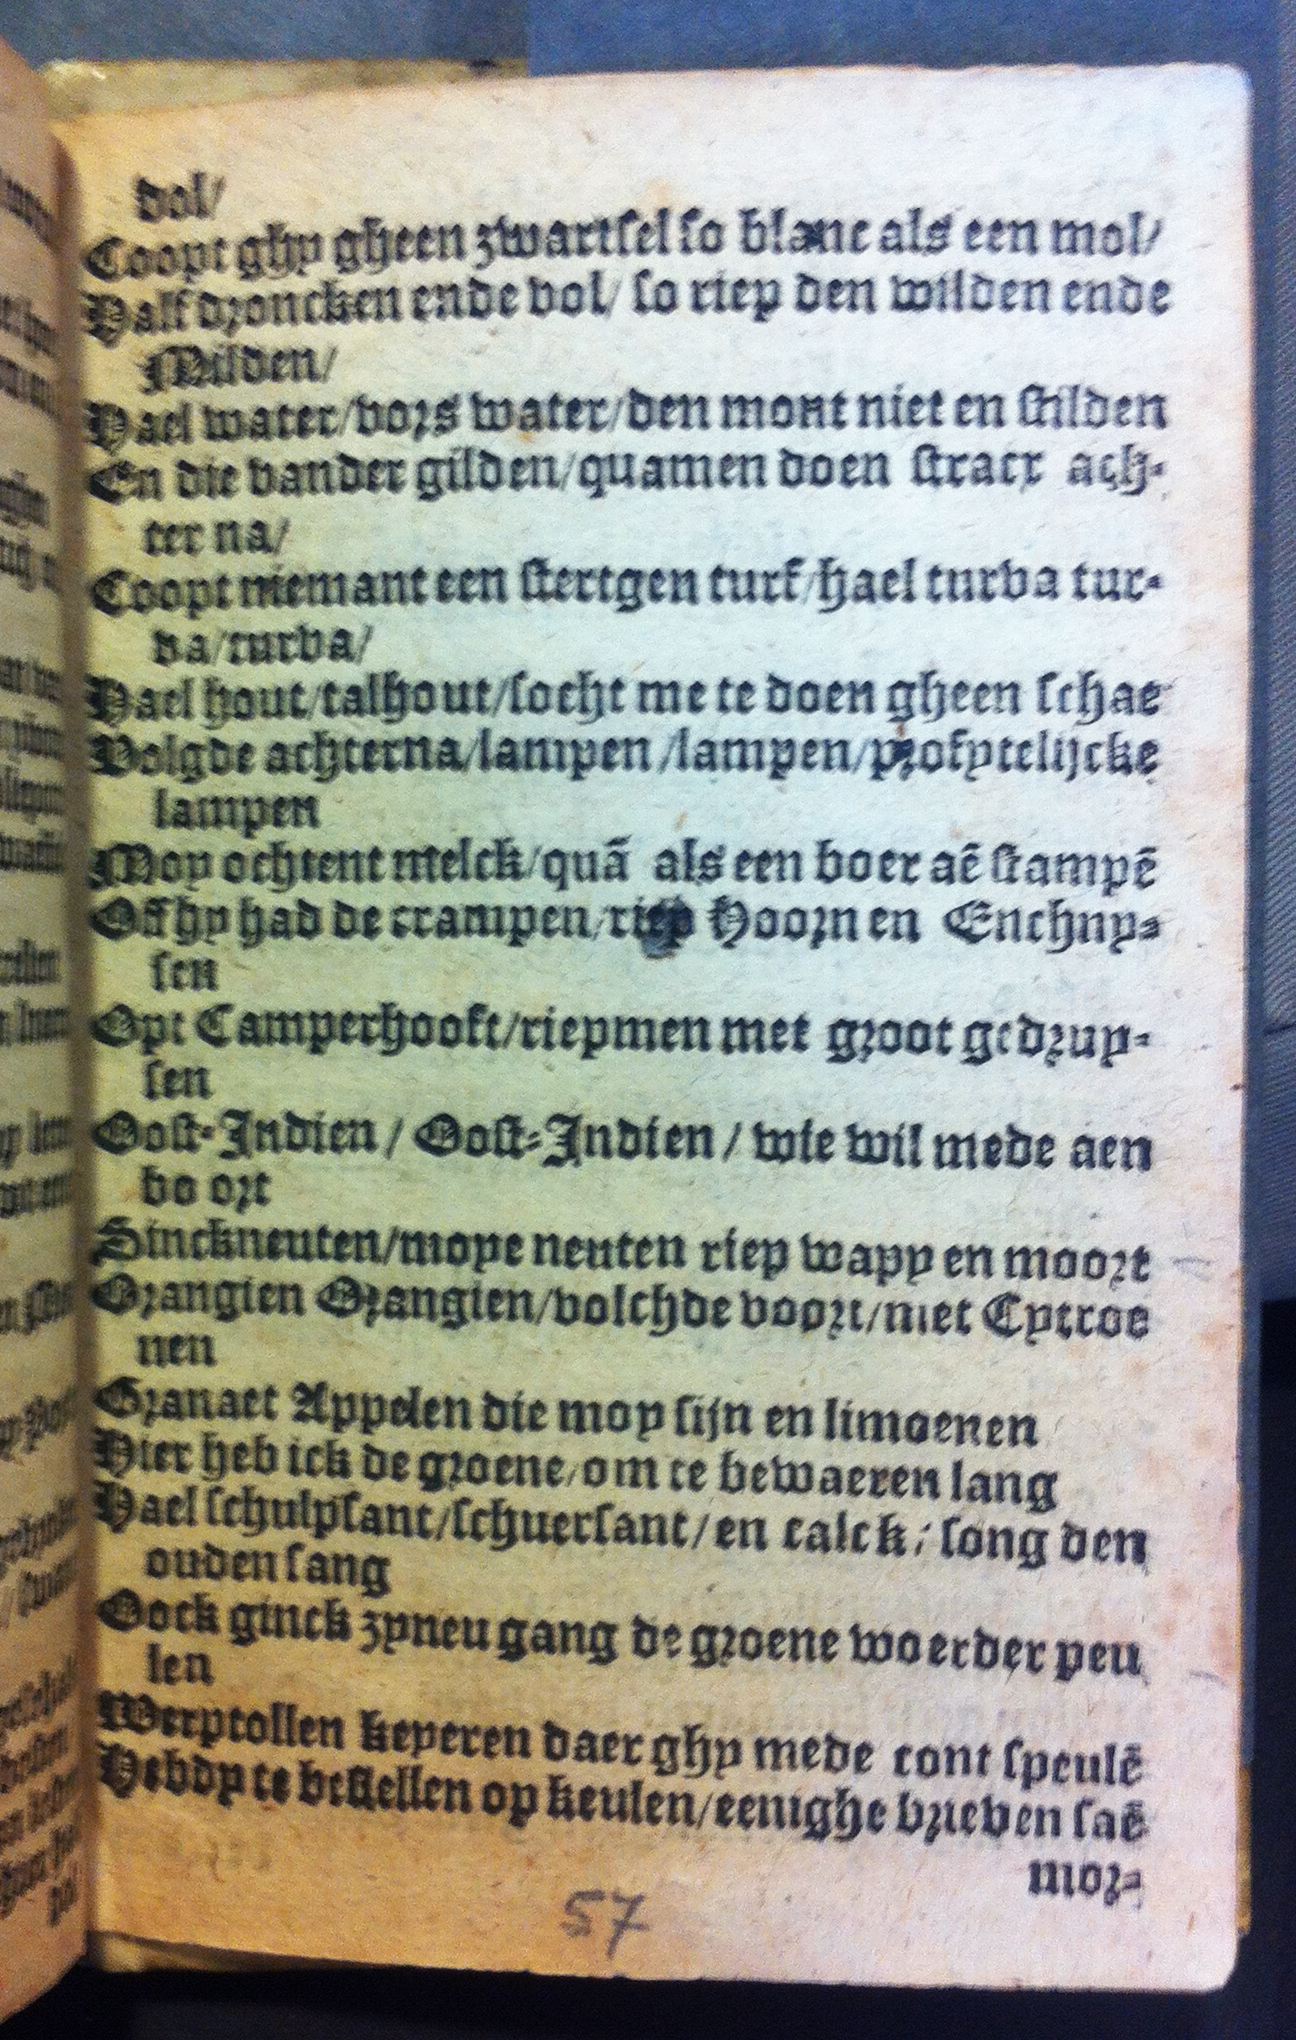 dol/
Coopt ghy gheen zwartsel so blanc als een mol/
Half droncken ende vol/ so riep den wilden ende
Milden/
Hael water/vors water/den mont niet en stilden
En die vander gilden/quamen doen stracx ach-
ter na/
Coopt niemant een stertgen turf/hael turva tur-
va/turva/
Hael hout/talhout/socht me te doen gheen schae
Volgde achterna/lampen/lampen/profytelijcke
lampen
Moy ochtent melck/quã als een boer aẽ stampẽ
Off hy had de crampen/riep Hoorn en Enchuy-
sen
Opt Camperhooft/riepmen met groot gedruy-
sen
Oost-Indien/ Oost-Indien/ wie wil mede aen
bo ort
Sinckneuten/moye neuten riep wapy en moort
Orangien Orangien/volchde voort/met Cytroe
nen
Granaet Appelen die moy sijn en limoenen
Hier heb ick de groene/om te bewaeren lang
Hael schulpsant/schuersant/en calck/ song den
ouden sang
Oock ginck zyneu gang de groene woerder peu
len
Werptollen keyeren daer ghy mede cont speulẽ
Hebdy te bestellen op keulen/eenighe brieven saẽ
mor-
57